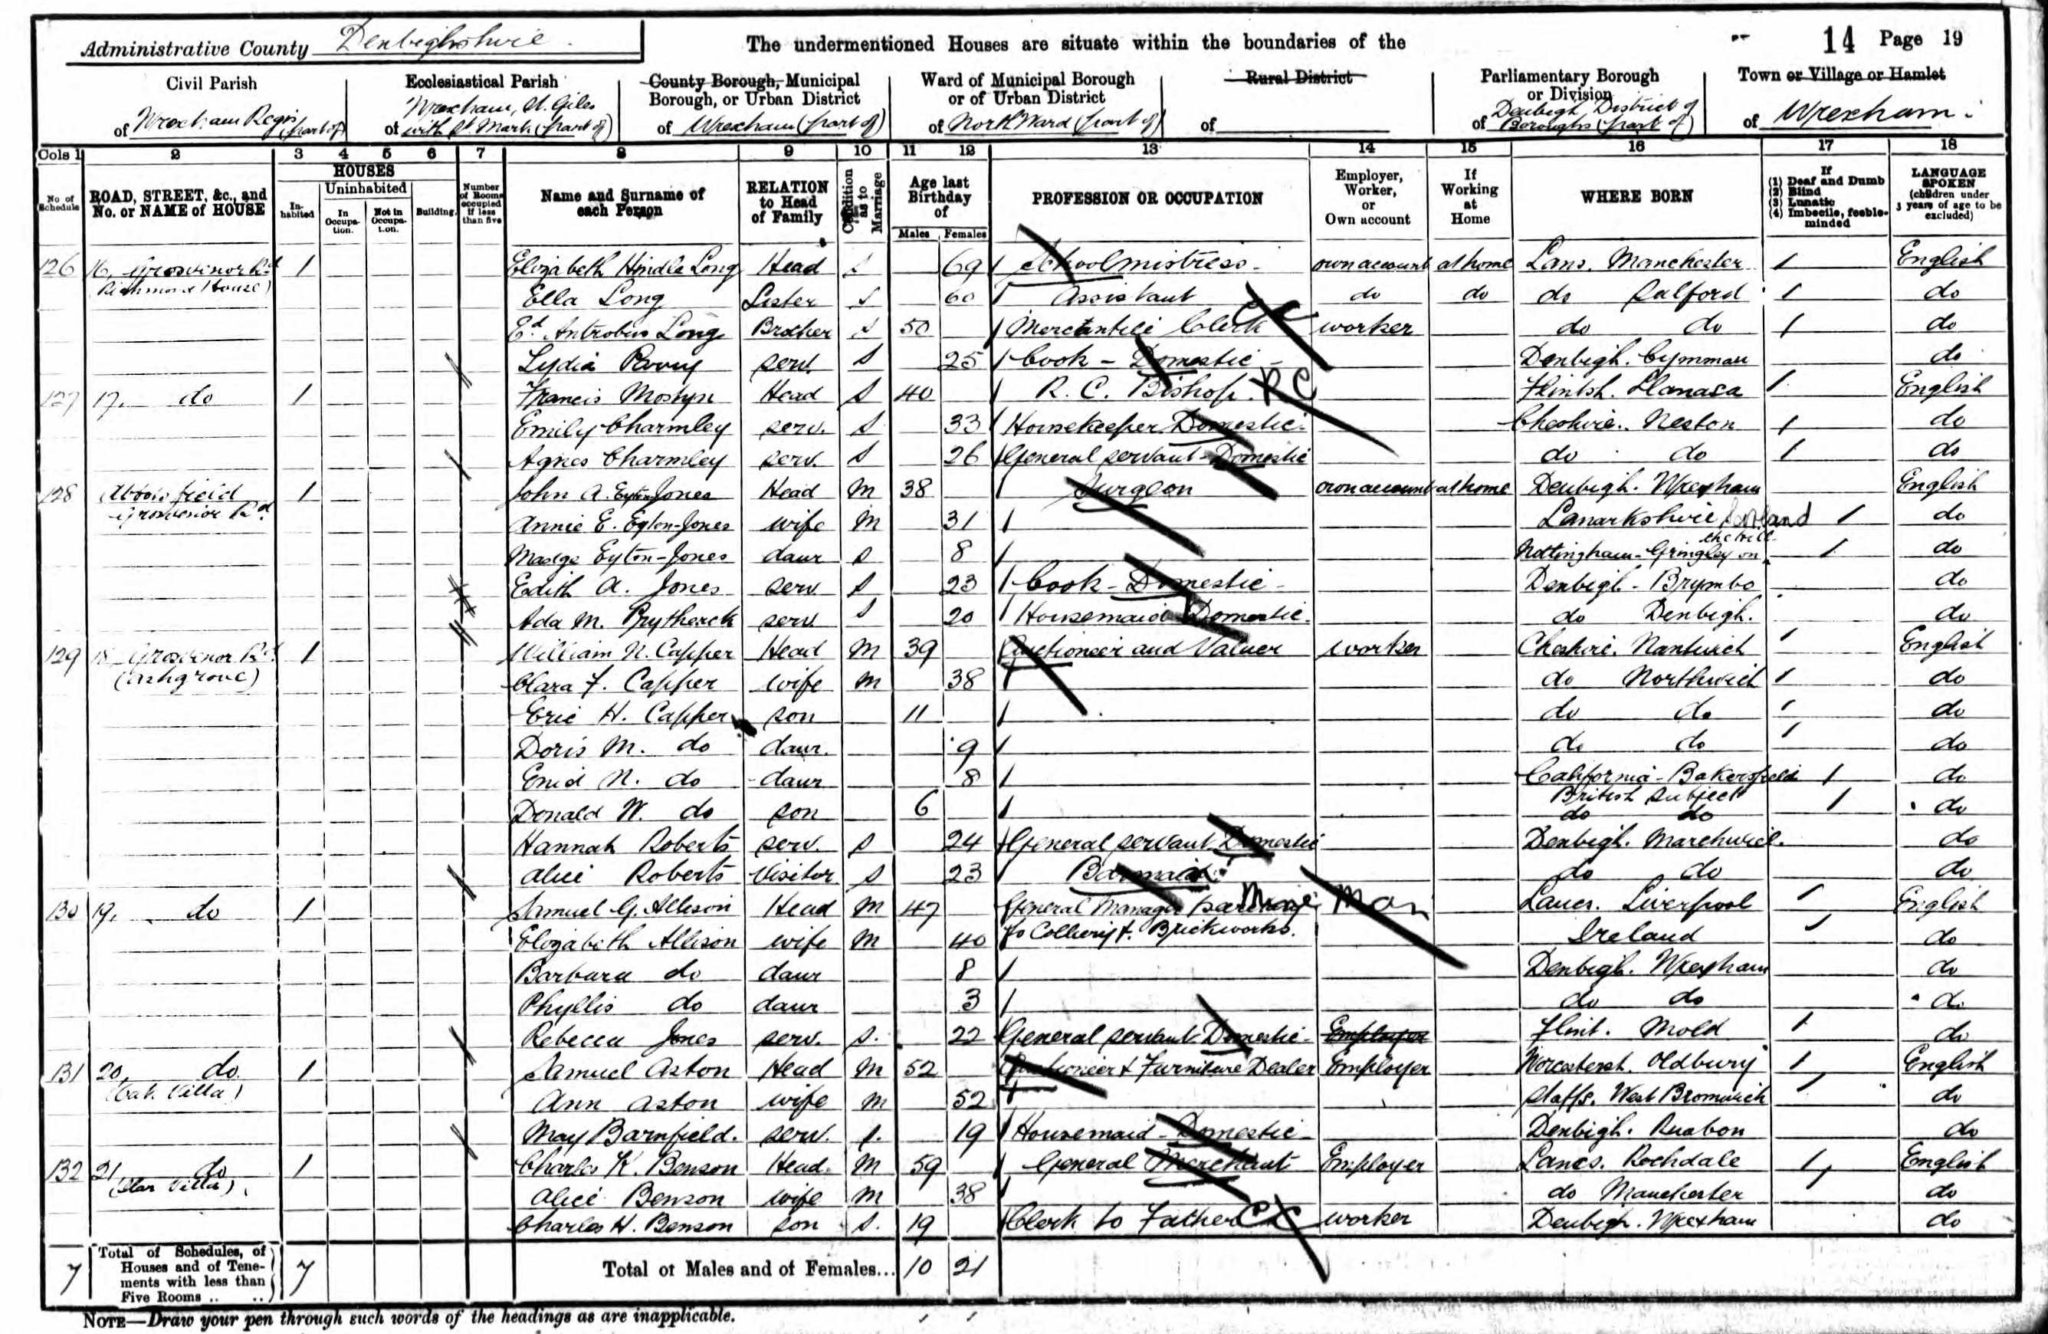 Administrative County Denbighshire. The undermentioned Houses are situate within the boundaries of the 14 Page 19
Civil Parish of Wrexham Regis (part of)
Ecclesiastical Parish of Wrexham, St. Giles with St. Mark (part of)
County Borough, Municipal Borough, or Urban District of Wrexham (part of)
Ward of Municipal Borough or of Urban District of North Ward (part of)
Rural District of
Parliamentary Borough or Division of Denbigh District of Boroughs (part of)
Town or Village or Hamlet of Wrexham.
Cols 1 2 3 4 5 6 7 8 9 10 11 12 13 14 15 16 17 18
No. of Schedule
ROAD, STREET, &c., and No. or NAME of HOUSE
HOUSES
Inhabited
Uninhabited
In Occupation.
Not in Occupation.
Building.
Number of Rooms occupied if less than five
Name and Surname of each Person
RELATION to Head of Family
Condition as to Marriage
Age last Birthday of
Males Females
PROFESSION OR OCCUPATION
Employer, Worker, or Own account
If Working at Home
WHERE BORN
If (1) Deaf and Dumb (2) Blind (3) Lunatic (4) Imbecile, feeble-minded
LANGUAGE SPOKEN (children under 3 years of age to be excluded)
126 16, Grosvenor Rd (Richmond House) 1 Elizabeth Hindle Long Head S 69 Schoolmistress own account at home Lans. Manchester English
Ella Long Sister S 60 Assistant do do do Salford do
Ed. Antrobus Long Brother S 50 Mercantile Clerk worker do do do
Lydia serv. S 25 Cook - Domestic - Denbigh. Cymmau do
127 17, do 1 Francis Mostyn Head S 40 R. C. Bishop. RC Flintsh. Llanasa English
Emily Charmley serv. S 33 Housekeeper Domestic. Cheshire. Neston do
Agnes Charmley serv. S 26 General servant - Domestic do do do
128 field Grosvenor Rd 1 John A. Eyton Jones Head M 38 Surgeon own account at home Denbigh. Wrexham English
Annie E. Eyton-Jones wife M 31 Lanarkshire Scotland do
Madge Eyton-Jones daur S 8 Nottingham - Gringley on the Hill do
Edith A. Jones serv S 23 Cook - Domestic - Denbigh - Brymbo do
Ada M. Prytherch serv S 20 Housemaid Domestic. do Denbigh. do
129 18, Grosvenor Rd (Ashgrove) 1 William N. Capper Head M 39 Auctioneer and Valuer worker Cheshire. Nantwich English
Clara F. Capper wife M 38 do Northwich do
Eric H. Capper son 11 do do do
Doris M. do daur. 9 do do do
Enid N. do daur 8 California - Bakersfield British Subject do
Donald W. do son 6 do do do
Hannah Roberts serv. S 24 General servant Domestic Denbigh. Marchwiel. do
Alice Roberts Visitor S 23 Barmaid do do do
130 19, do 1 Samuel G. Allison Head M 47 General Manager to Colliery & Brickworks. Lancs. Liverpool English
Elizabeth Allison wife M 40 Ireland do
Barbara do daur 8 Denbigh. Wrexham do
Phyllis do daur 3 do do do
Rebecca Jones serv. S. 22 General servant Domestic - Employer Flint. Mold do
131 20, do (Oak Villa) 1 Samuel Aston Head M 52 Auctioneer & Furniture Dealer Employer Worcestersh. Oldbury English
Ann Aston wife M 52 Staffs. West Bromwich do
May Barnfield. serv. S. 19 Housemaid - Domestic - Denbigh. Ruabon do
132 21, do (Villa) 1 Charles K. Benson Head. M 59 General Merchant Employer Lancs. Rochdale English
Alice Benson wife M 38 do Manchester do
Charles H. Benson son S. 19 Clerk to Father worker Denbigh. Wrexham do
7 Total of Schedules, of Houses and of Tenements with less than Five Rooms .. .. 7 Total of Males and of Females... 10 21
NOTE—Draw your pen through such words of the headings as are inapplicable.